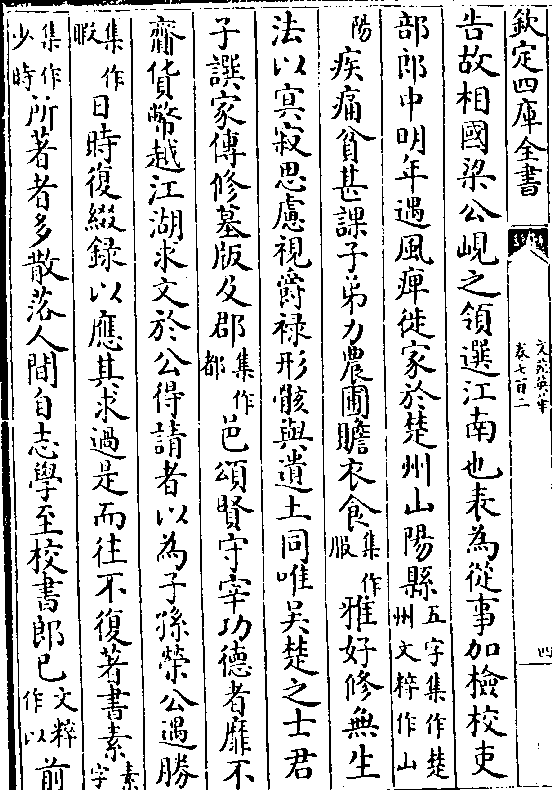 欽定四庫全書
文苑英華
卷七百二
四
告故相國梁公峴之領選江南也表為從事加檢校吏
部郎中明年遇風痺徙家於楚州山陽縣五字集作楚州文粹作山
陽疾痛貧甚課子弟力農圃贍衣食集作服雅好修無生
法以冥寂思慮視爵禄形骸與遺土同唯吴楚之士君
子譔家傳修墓版及郡集作都邑頌賢守宰功德者靡不
齎貨幣越江湖求文於公得請者以為子孫榮公遇勝
集作暇日時復綴録以應其求過是而往不復著書素素字
集作少時所著者多散落人間自志學至校書郎已文粹作以前